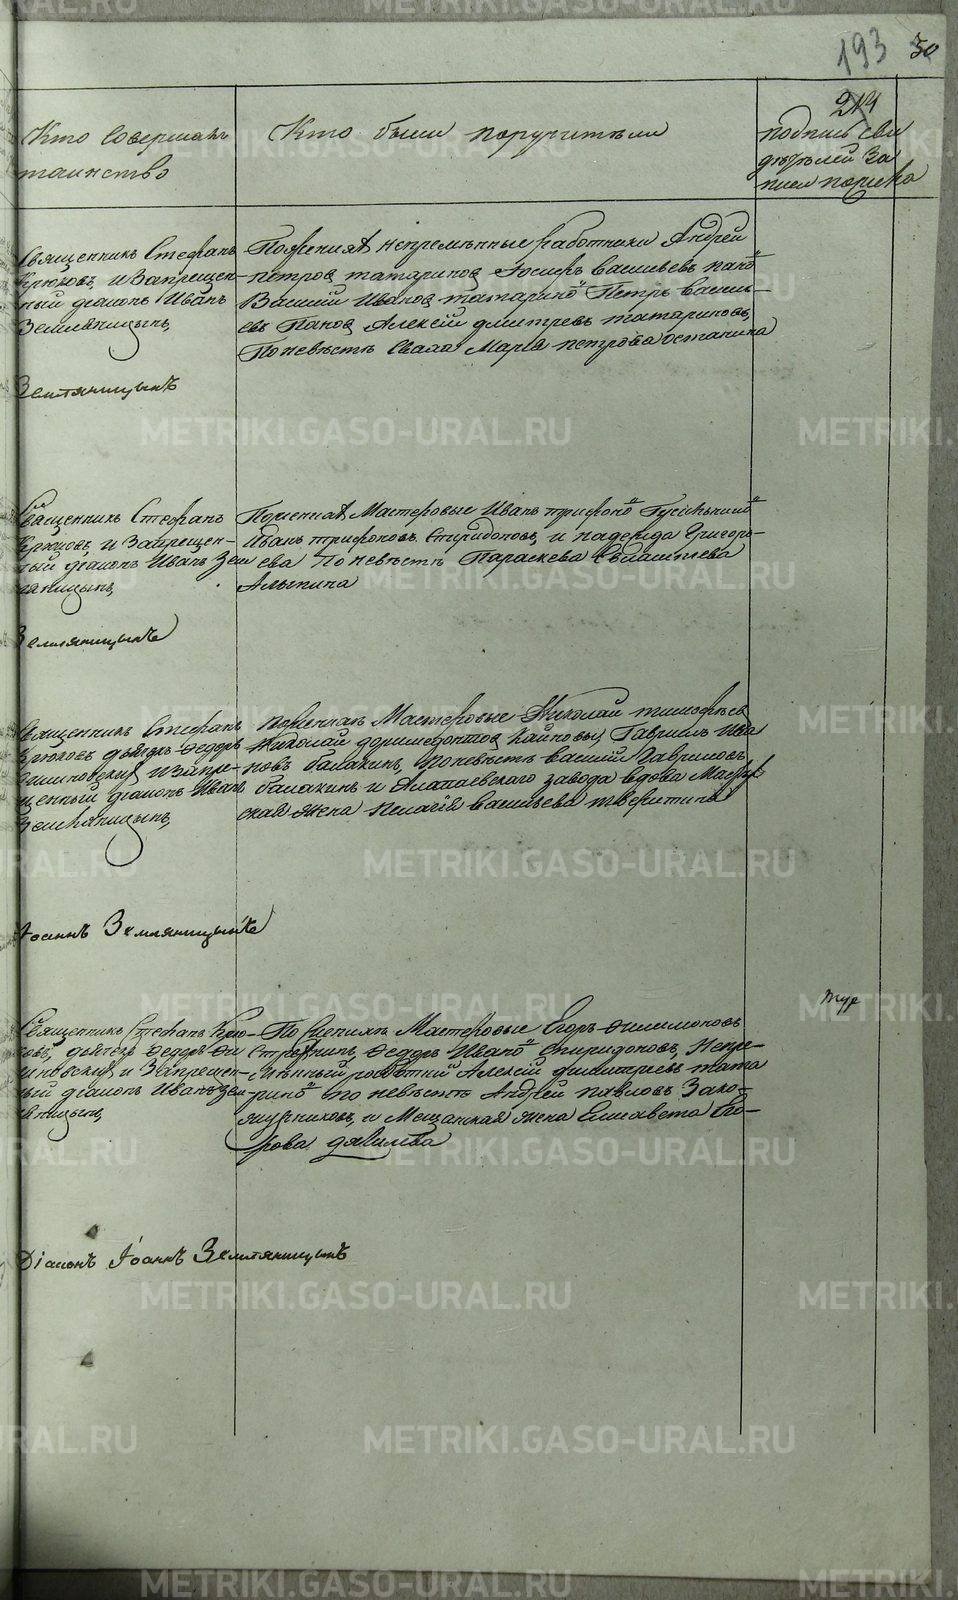 193 30
214
Кто совершалъ
таинство
Кто были поручители
подпись сви
дѣтелей за
писи по
Священникъ Стефанъ
Крюковъ и Запрещен-
ный діаконъ Иванъ
Земляницынъ
Земляницынъ
По женихѣ непремѣнные работники Андрей
Петровъ татариновъ Іосифъ васильевъ пано
Василій Ивановъ татарино Петръ василь-
евъ Пановъ Алексій дмитревъ татариновъ,
По невѣстѣ Сваха Марія петрова останина
Священникъ Стефанъ
Крюковъ, и Запрещен-
ный діаконъ Иванъ Зем
ляницынъ
Земляницынъ
По женихѣ Мастеровые Иванъ трифоно
Иванъ трифоновъ Спиридоновъ, и надежда Григорь-
ева По невѣстѣ Параскева
Алыпина
Священникъ Стефанъ
Крюковъ дьячекъ Федоръ
и Запре-
щенный діаконъ Иванъ
Земляницынъ
Іоаннъ Земляницынъ
По женихѣ Мастеровые Николай тимофѣев
Николай доримедонтовъ Гавриилъ Ива
новъ балакинъ, По невѣстѣ василій Гавриловъ
балакинъ и Алапаевского завода вдова Мастер
ская Жена Пелагія васильева тверитина
Священникъ Стефанъ Крю-
ковъ, дьячекъ Федоръ Фи
и Запрещен-
ный діаконъ Иванъ Зем
ляницынъ
Діаконъ Іоаннъ Земляницынъ
По женихѣ Мастеровые Егоръ Филимоновъ
Федоръ Ивано Спиридоновъ, Непре-
мѣнный работникъ Алексій дмитріевъ тата
рино по невѣстѣ Андрей павловъ Зако-
журниковъ, и Мещанская жена Елисавета Его-
рова
тур
METRIKI.GASO-URAL.RU